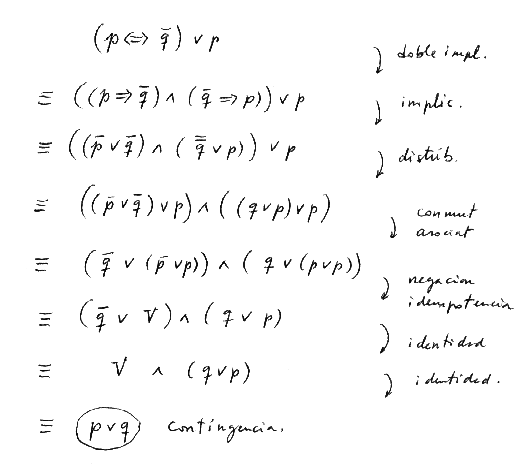 (p ⇔ q̄) ∨ p
doble impl.
≡ ((p ⇒ q̄) ∧ (q̄ ⇒ p)) ∨ p
implic.
≡ ((p̄ ∨ q̄) ∧ (q̿ ∨ p)) ∨ p
distrib.
≡ ((p̄ ∨ q̄) ∨ p) ∧ ((q ∨ p) ∨ p)
conmut
asociat
≡ (q̄ ∨ (p̄ ∨ p)) ∧ (q ∨ (p ∨ p))
negacion
idempotencia
≡ (q̄ ∨ V) ∧ (q ∨ p)
identidad
≡ V ∧ (q ∨ p)
identidad.
≡ p ∨ q contingencia.